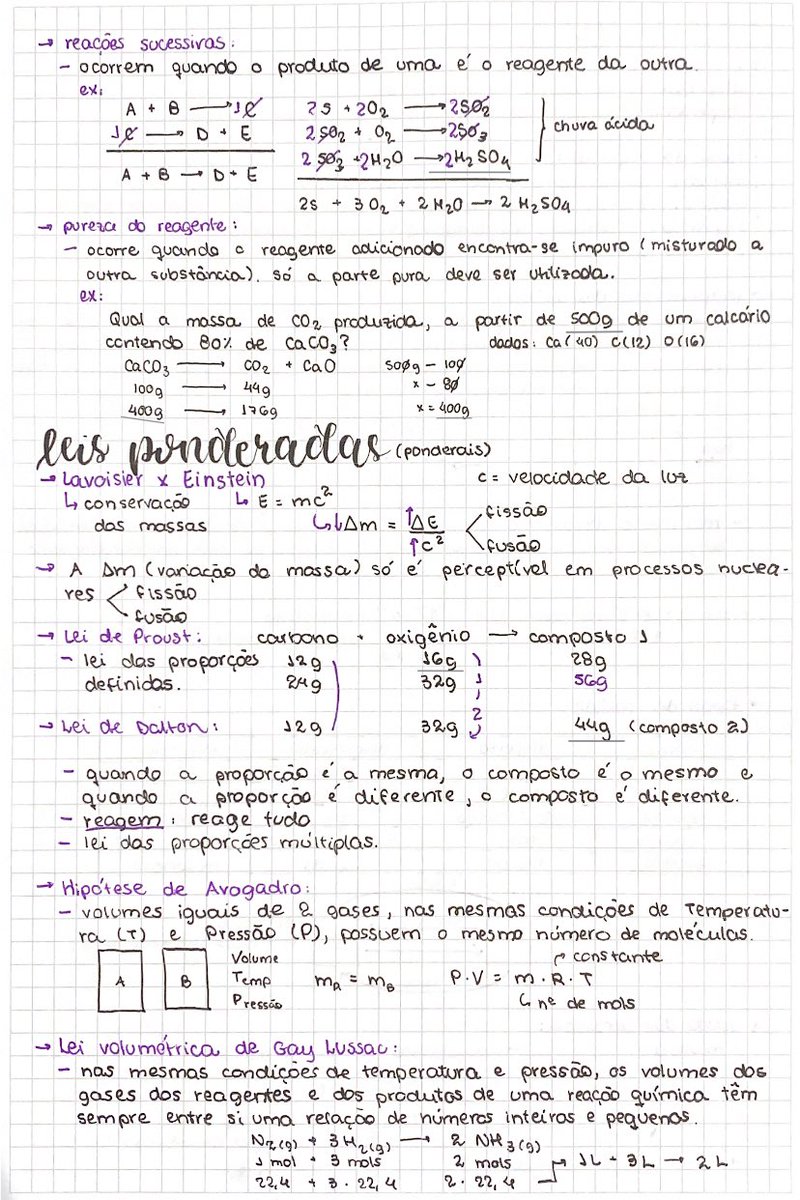 → reações sucessivas:
- ocorrem quando o produto de uma é o reagente da outra.
ex:
A + B → 1C 2S + 2O2 → 2SO2
1C → D + E 2SO2 + O2 → 2SO3 chuva ácida
2SO3 + 2H2O → 2H2SO4
A + B → D + E
2S + 3O2 + 2H2O → 2H2SO4
→ pureza do reagente:
- ocorre quando o reagente adicionado encontra-se impuro (misturado a
outra substância). só a parte pura deve ser utilizada.
ex:
Qual a massa de CO2 produzida, a partir de 500g de um calcário
contendo 80% de CaCO3? dados: Ca(40) C(12) O(16)
CaCO3 → CO2 + CaO 500g - 100
100g → 44g x - 80
400g → 176g x = 400g
leis ponderadas (ponderais)
→ Lavoisier x Einstein c = velocidade da luz
↳ conservação ↳ E = mc²
das massas ↳ ↓Δm = ↑ΔE / ↑c² fissão
fusão
→ A Δm (variação da massa) só é perceptível em processos nuclea-
res fissão
fusão
→ Lei de Proust: carbono + oxigênio → composto 1
- lei das proporções 12g 16g 28g
definidas. 24g 32g 56g
→ Lei de Dalton: 12g 32g 44g (composto 2)
1:2
- quando a proporção é a mesma, o composto é o mesmo e
quando a proporção é diferente, o composto é diferente.
- reagem: reage tudo
- lei das proporções múltiplas.
→ Hipótese de Avogadro:
- volumes iguais de 2 gases, nas mesmas condições de Temperatu-
ra (T) e Pressão (P), possuem o mesmo número de moléculas.
Volume constante
A B Temp mA = mB P·V = m·R·T
Pressão ↳ nº de mols
→ Lei volumétrica de Gay Lussac:
- nas mesmas condições de temperatura e pressão, os volumes dos
gases dos reagentes e dos produtos de uma reação química têm
sempre entre si uma relação de números inteiros e pequenos.
N2(g) + 3H2(g) → 2 NH3(g)
1 mol + 3 mols 2 mols → 1L + 3L → 2L
22,4 + 3 · 22,4 2 · 22,4